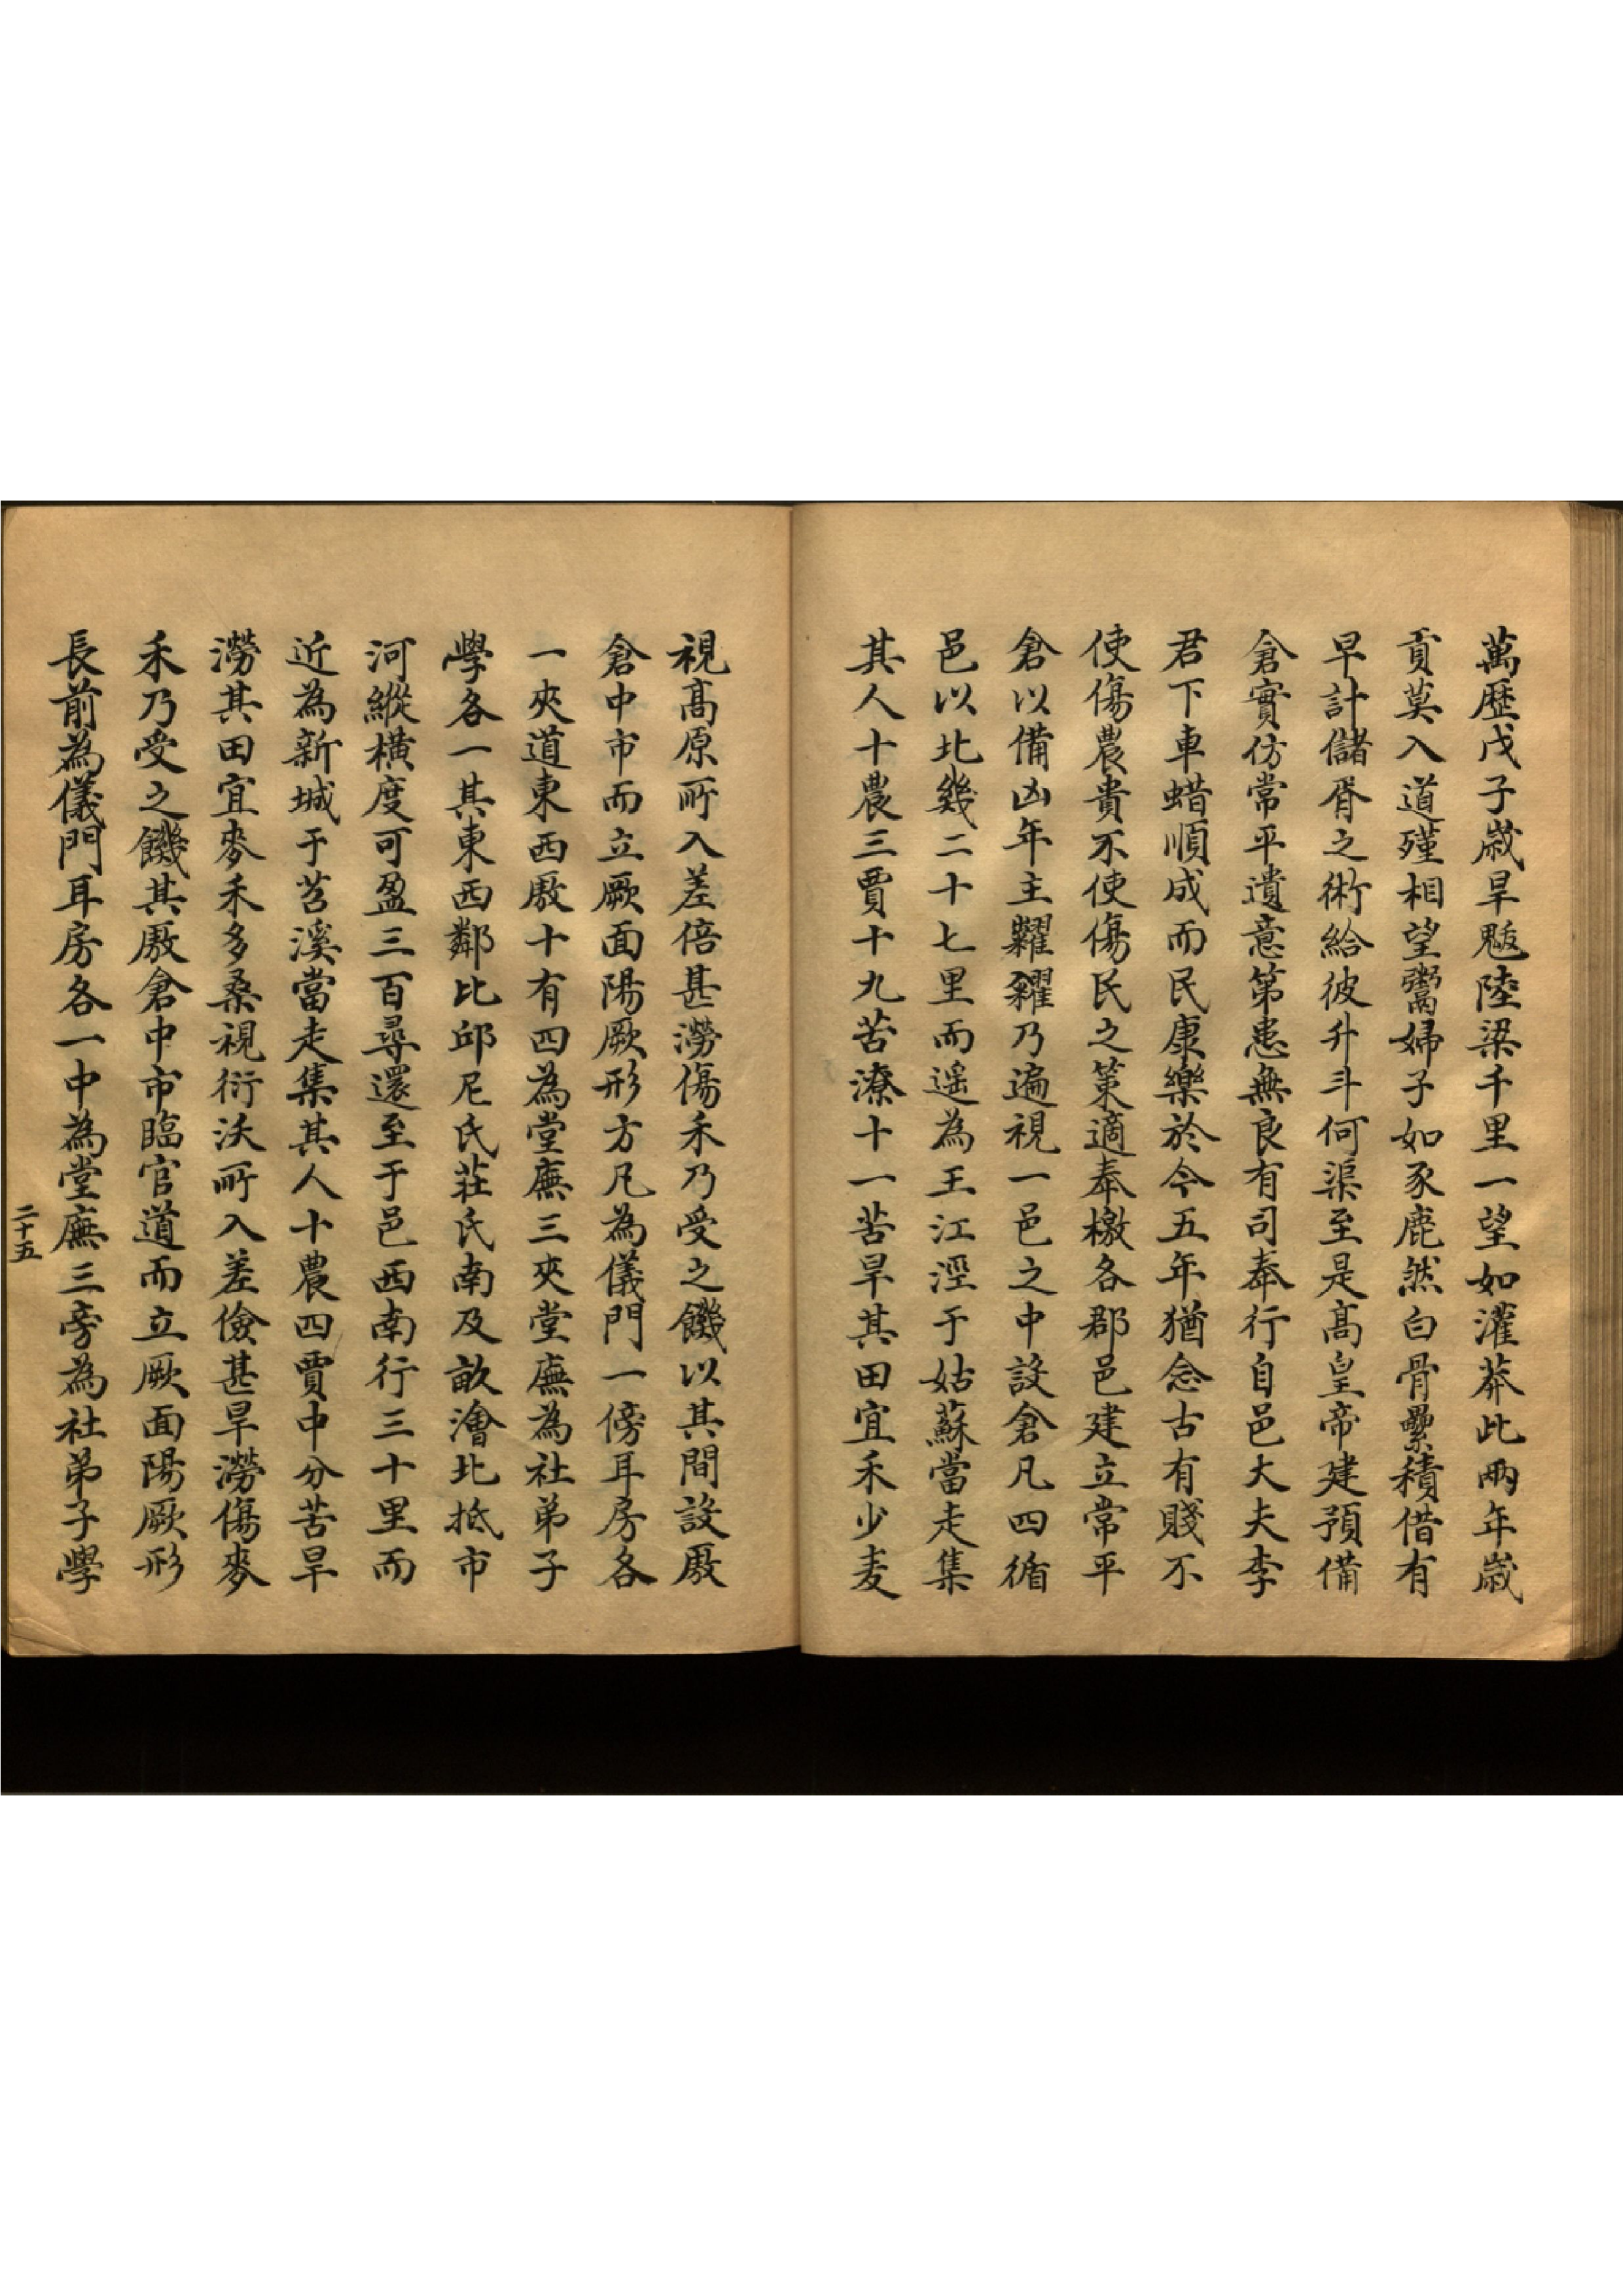 萬歷戊子歲旱魃陸梁千里一望如灌莽此兩年歲
貢莫入道殣相望鬻婦子如豕鹿然白骨纍積借有
早計儲胥之術給彼升斗何渠至是高皇帝建預備
倉實仿常平遺意第患無良有司奉行自邑大夫李
君下車蜡順成而民康樂於今五年猶念古有賤不
使傷農貴不使傷民之策適奉檄各郡邑建立常平
倉以備凶年主糶糴乃遍視一邑之中設倉凡四循
邑以北幾二十七里而遥為王江涇于姑蘇當走集
其人十農三賈十九苦潦十一苦旱其田宜禾少麦
視高原所入差倍甚澇傷禾乃受之饑以其間設廒
倉中市而立厥面陽厥形方凡為儀門一傍耳房各
一夾道東西廒十有四為堂廡三夾堂廡為社弟子
學各一其東西鄰比邱尼氏莊氏南及畝澮北抵市
河縱橫度可盈三百尋還至于邑西南行三十里而
近為新城于苕溪當走集其人十農四賈中分苦旱
澇其田宜麥禾多桑視衍沃所入差儉甚旱澇傷麥
禾乃受之饑其廒倉中市臨官道而立厥面陽厥形
長前為儀門耳房各一中為堂廡三旁為社弟子學
二十五